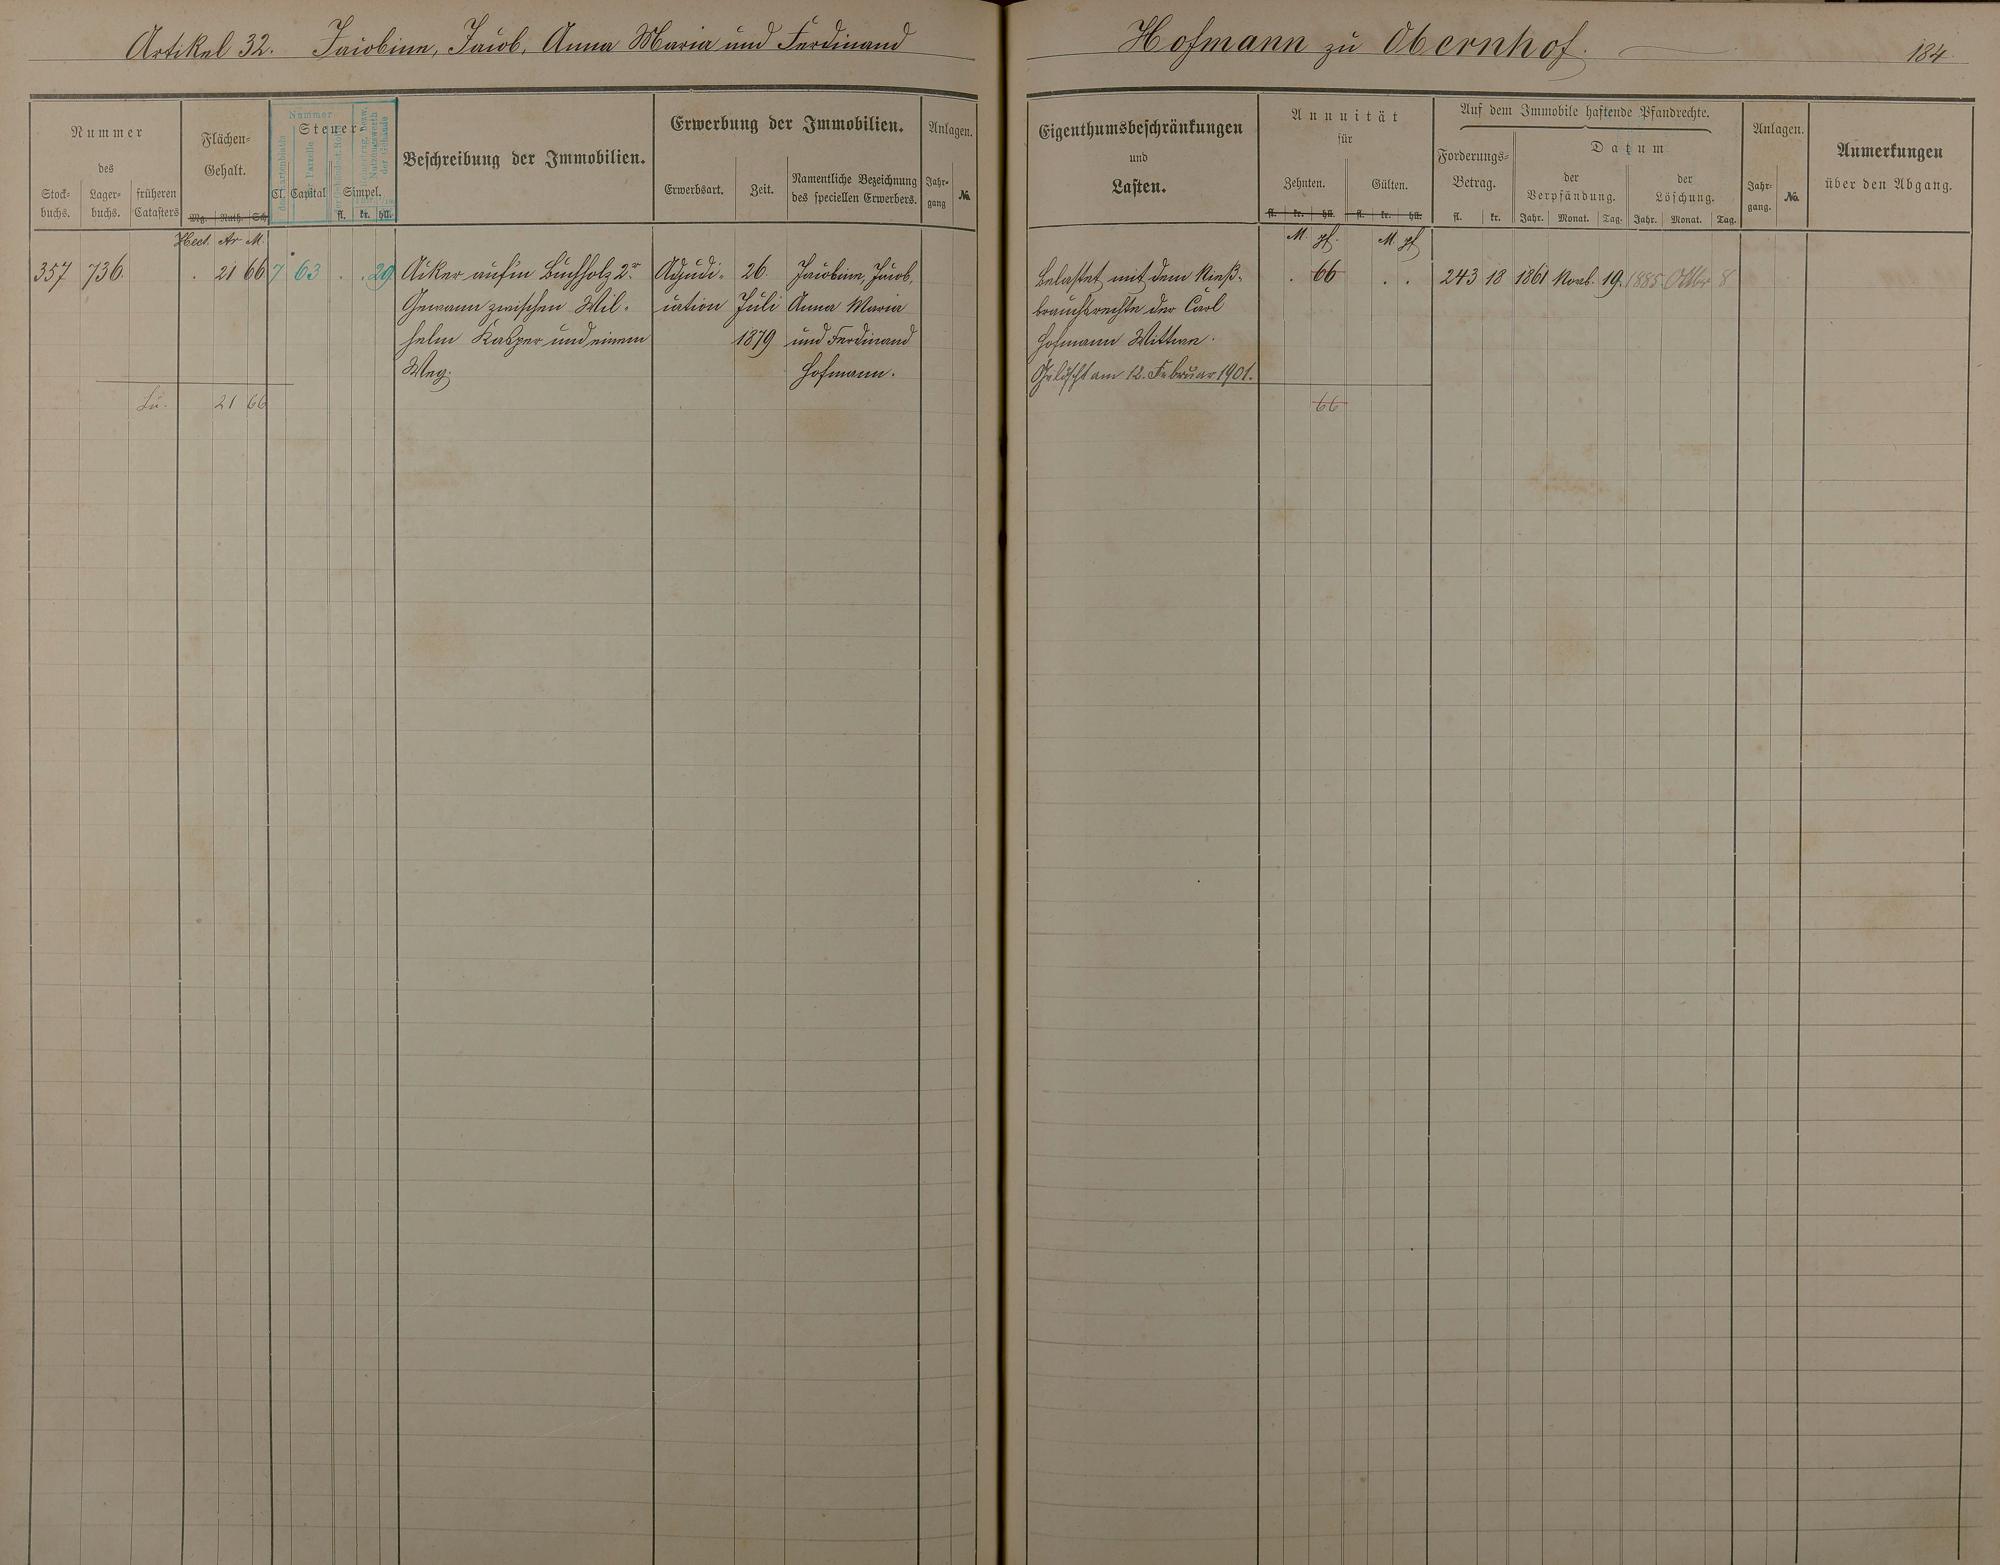 Artikel 32. Jacobine, Jacob, Anna Maria und Ferdinand
Hofmann zu Obernhof.
184.
Nummer
des
Stock-
buchs.
Lager-
buchs.
früheren
Catasters
Flächen-
Gehalt.
Mg. Ruth. Sch.
Nummer
Steuer-
Cl. Capital Simpel.
fl. kr. hll.
Beschreibung der Immobilien.
Erwerbung der Immobilien.
Erwerbsart.
Zeit.
Namentliche Bezeichnung
des speciellen Erwerbers.
Anlagen.
Jahr-
gang
No.
Eigenthumsbeschränkungen
und
Lasten.
Annuität
für
Zehnten.
Gülten.
fl. kr. hll. fl. kr. hll.
Auf dem Immobile haftende Pfandrechte.
Forderungs-
Betrag.
fl. kr.
Datum
der
Verpfändung.
Jahr. Monat. Tag.
der
Löschung.
Jahr. Monat. Tag.
Anlagen.
Jahr-
gang.
No.
Anmerkungen
über den Abgang.
Hect. Ar M.
357 736. . 21 66 7 63 . . 29
Acker auf'm Buchholz 2r
Gewann zwischen Wil-
helm Kasper und einem
Weg.
Adjudi-
cation
26.
Juli
1879
Jacobine, Jacob,
Anna Maria
und Ferdinand
Hofmann.
Sa. 21 66
Belastet mit dem Nieß-
brauchsrechte der Carl
Hofmann Wittwe.
Gelöscht am 12. Februar 1901.
M. pf. M. pf
. 66 . .
66
243 18 1861 Novb. 19. 1885. Octbr 8